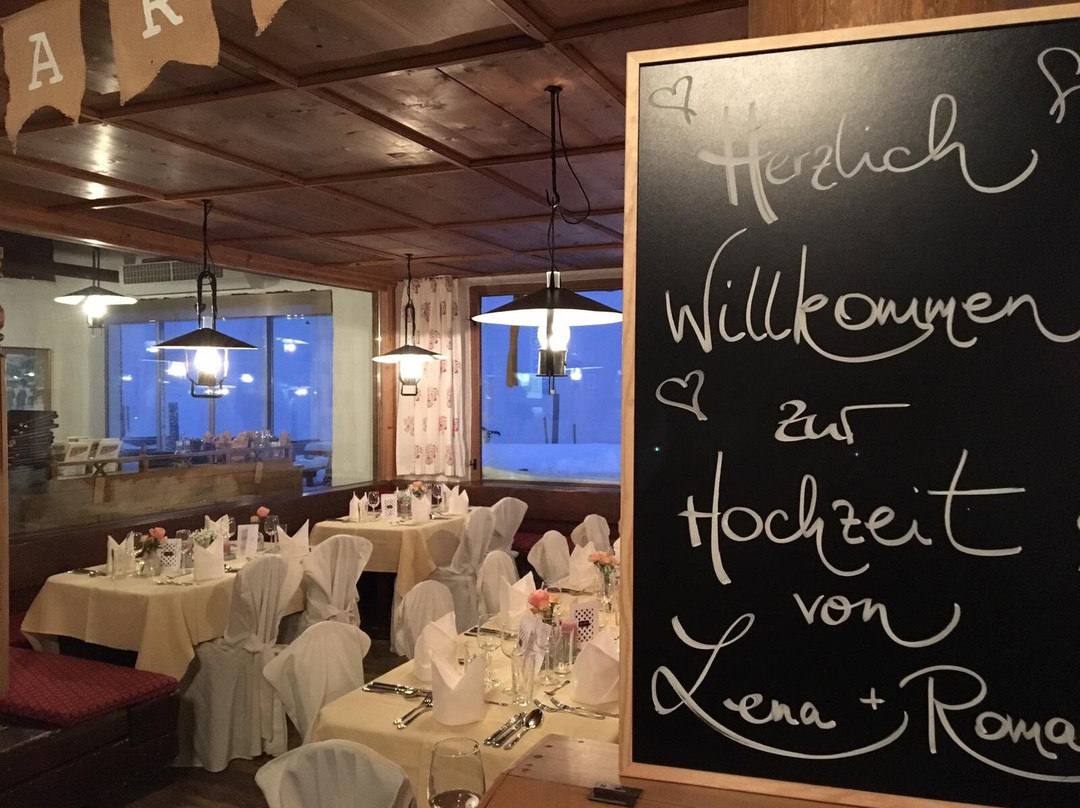 A R
Herzlich
Willkommen
zur
Hochzeit
von
Lena + Roma